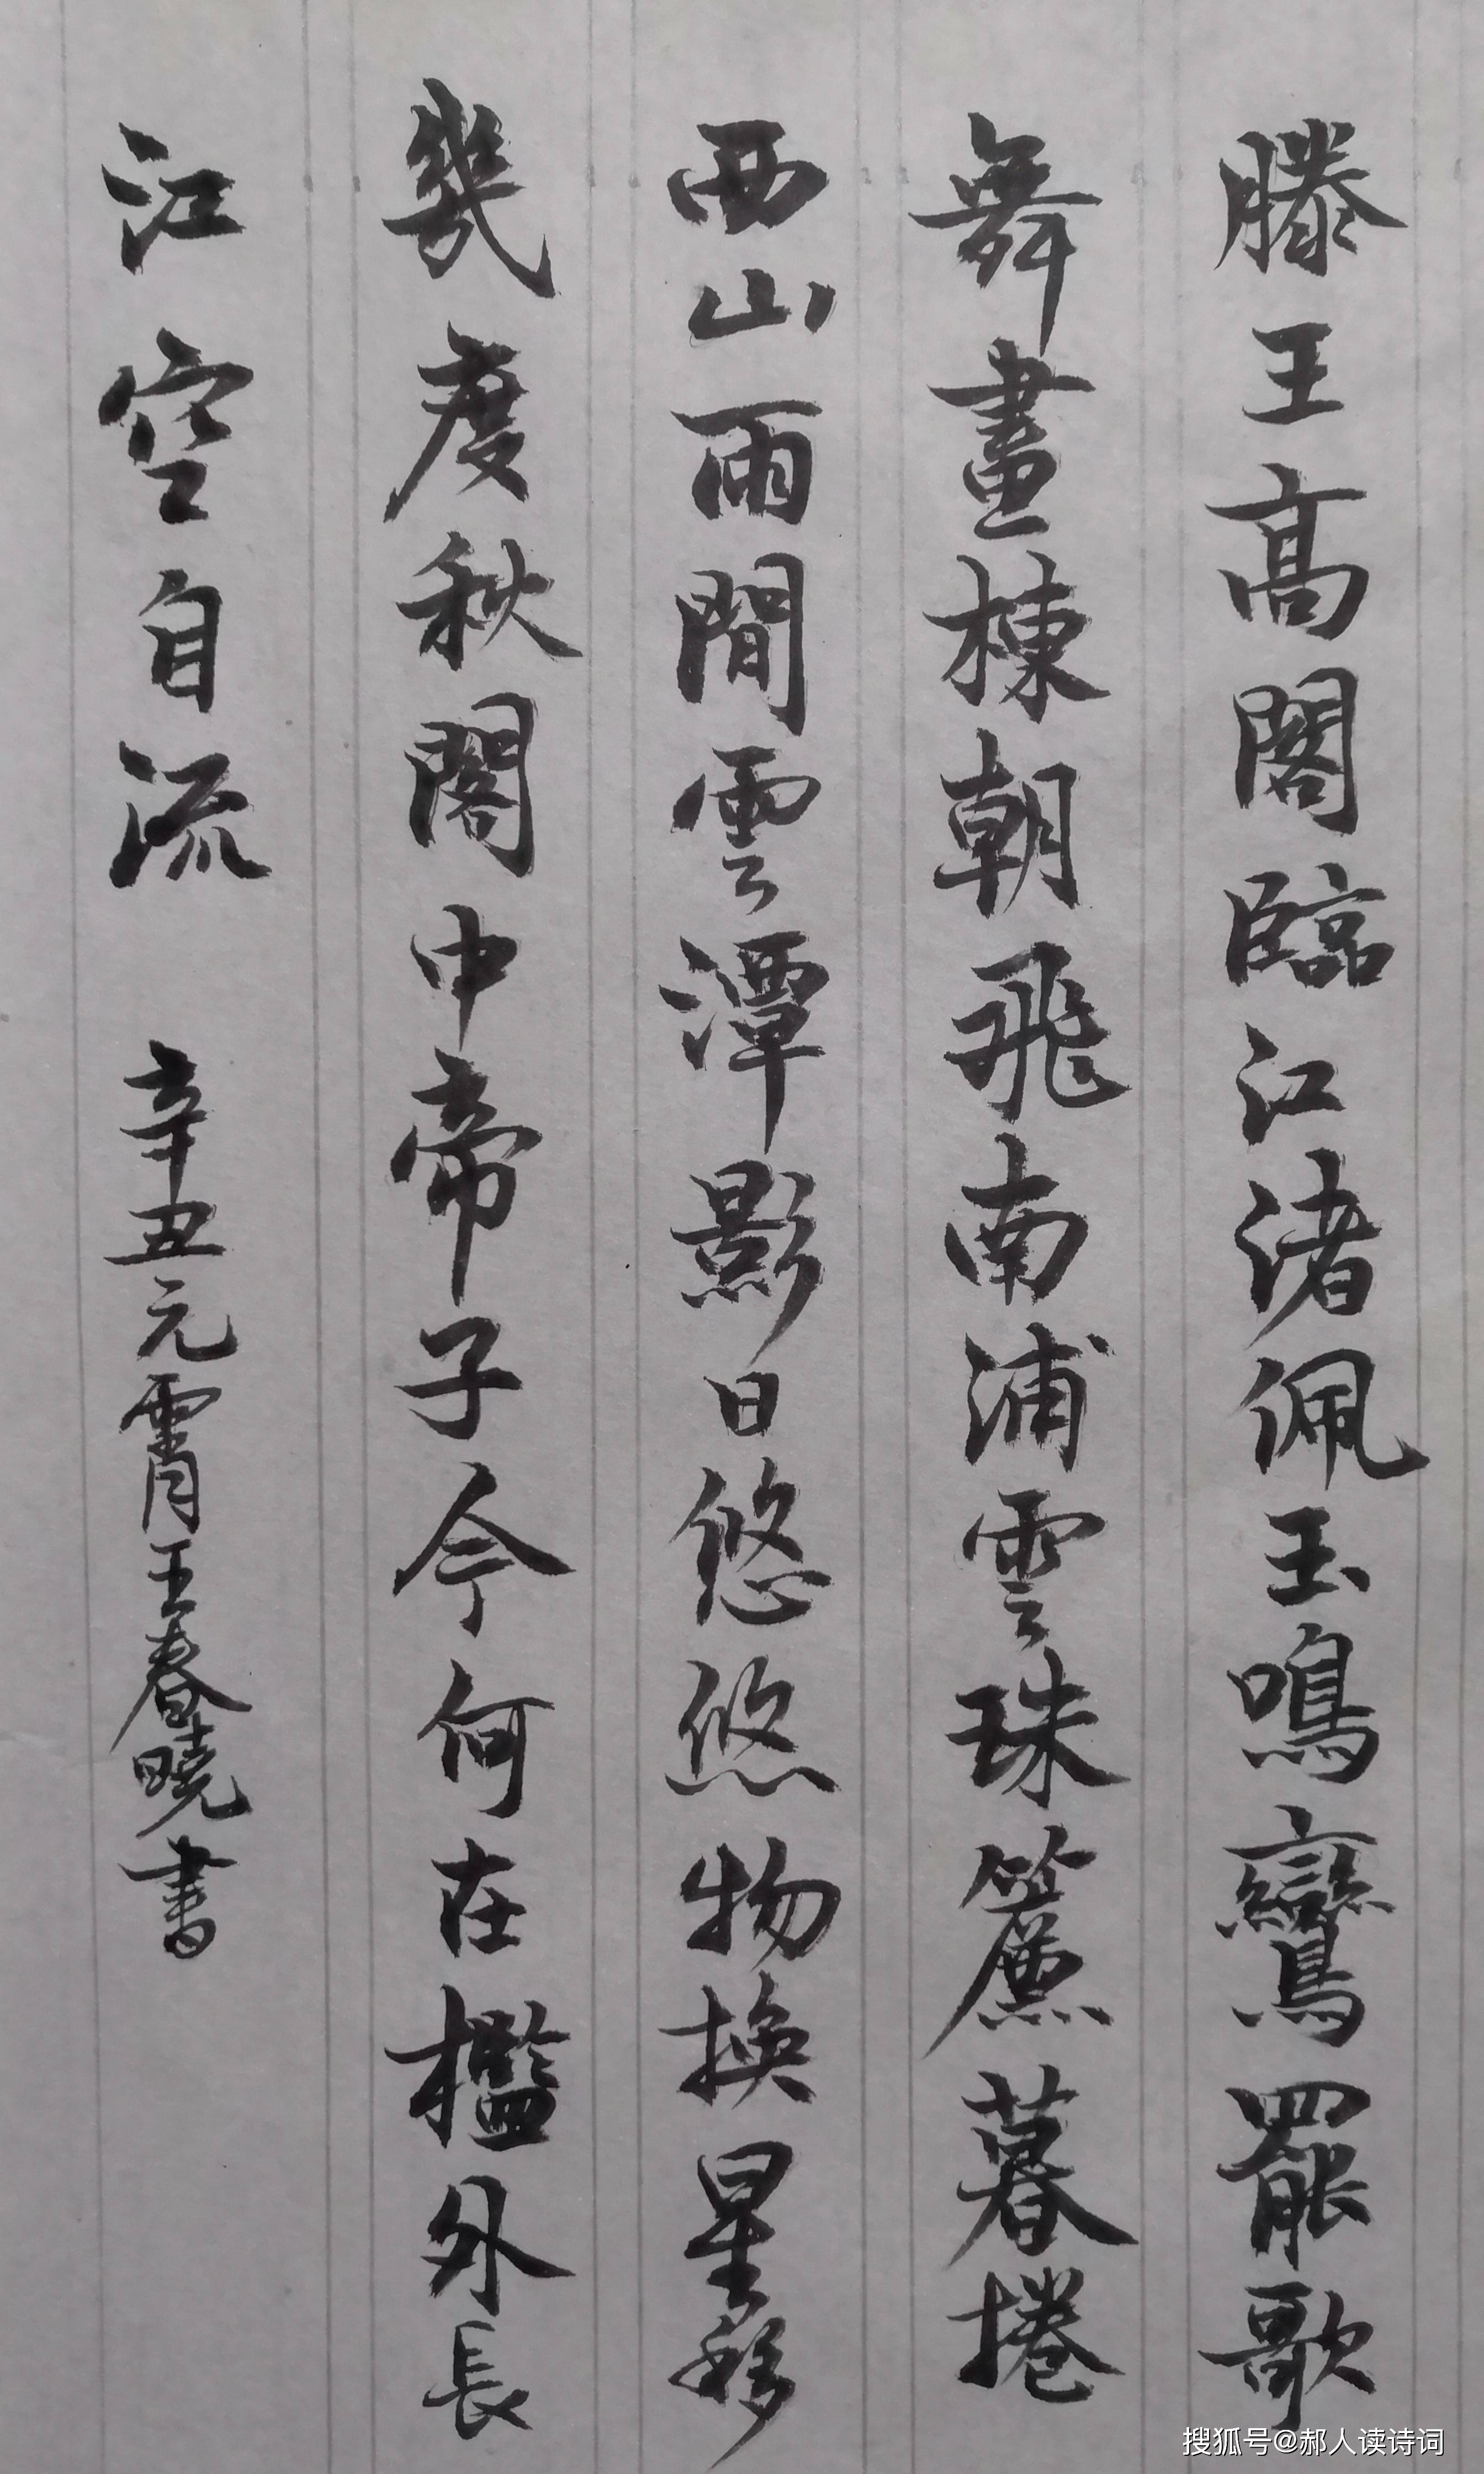 滕王高閣臨江渚佩玉鳴鸞罷歌
舞畫棟朝飛南浦雲珠簾暮捲
西山雨閒雲潭影日悠悠物換星移
幾度秋閣中帝子今何在檻外長
江空自流 辛丑元霄王春曉書
搜狐号@郝人读诗词